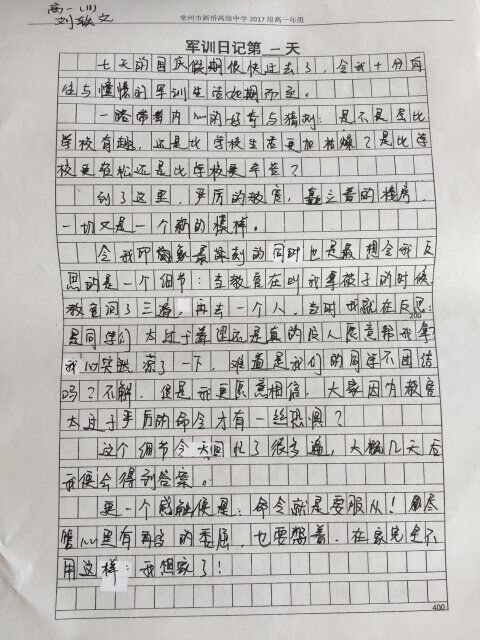 高一(11)
刘锬文
常州市新桥高级中学 2017 级高一年级
军训日记第一天
七天的国庆假期很快过去了,令我十分陌
生与憧憬的军训生活如期而至。
一路带着内心的好奇与猜测:是不是会比
学校有趣,还是比学校生活更加枯燥?是比学
校更轻松还是比学校更辛苦?
到了这里,严厉的教官,矗立着的楼房,
一切又是一个新的模样。
令我印象最深刻的同时也是最想令我反
思的是一个细节:当教官在叫我拿被子的时候,
教官问了三遍,再去一个人,当时我就在反思:
200
是同学们太过于羞涩还是真的没人愿意帮我拿
我心突然凉了一下,难道是我们的同学不团结
吗?不解,但是我更愿意相信,大家因为教官
太过于严厉的命令才有一丝恐惧?
这个细节今天回忆了很多遍,大概几天后
我便会得到答案。
更一个感触便是:命令就是要服从!尽
管心里有再多的委屈,也要憋着。在家完全不
用这样:我想家了!
400